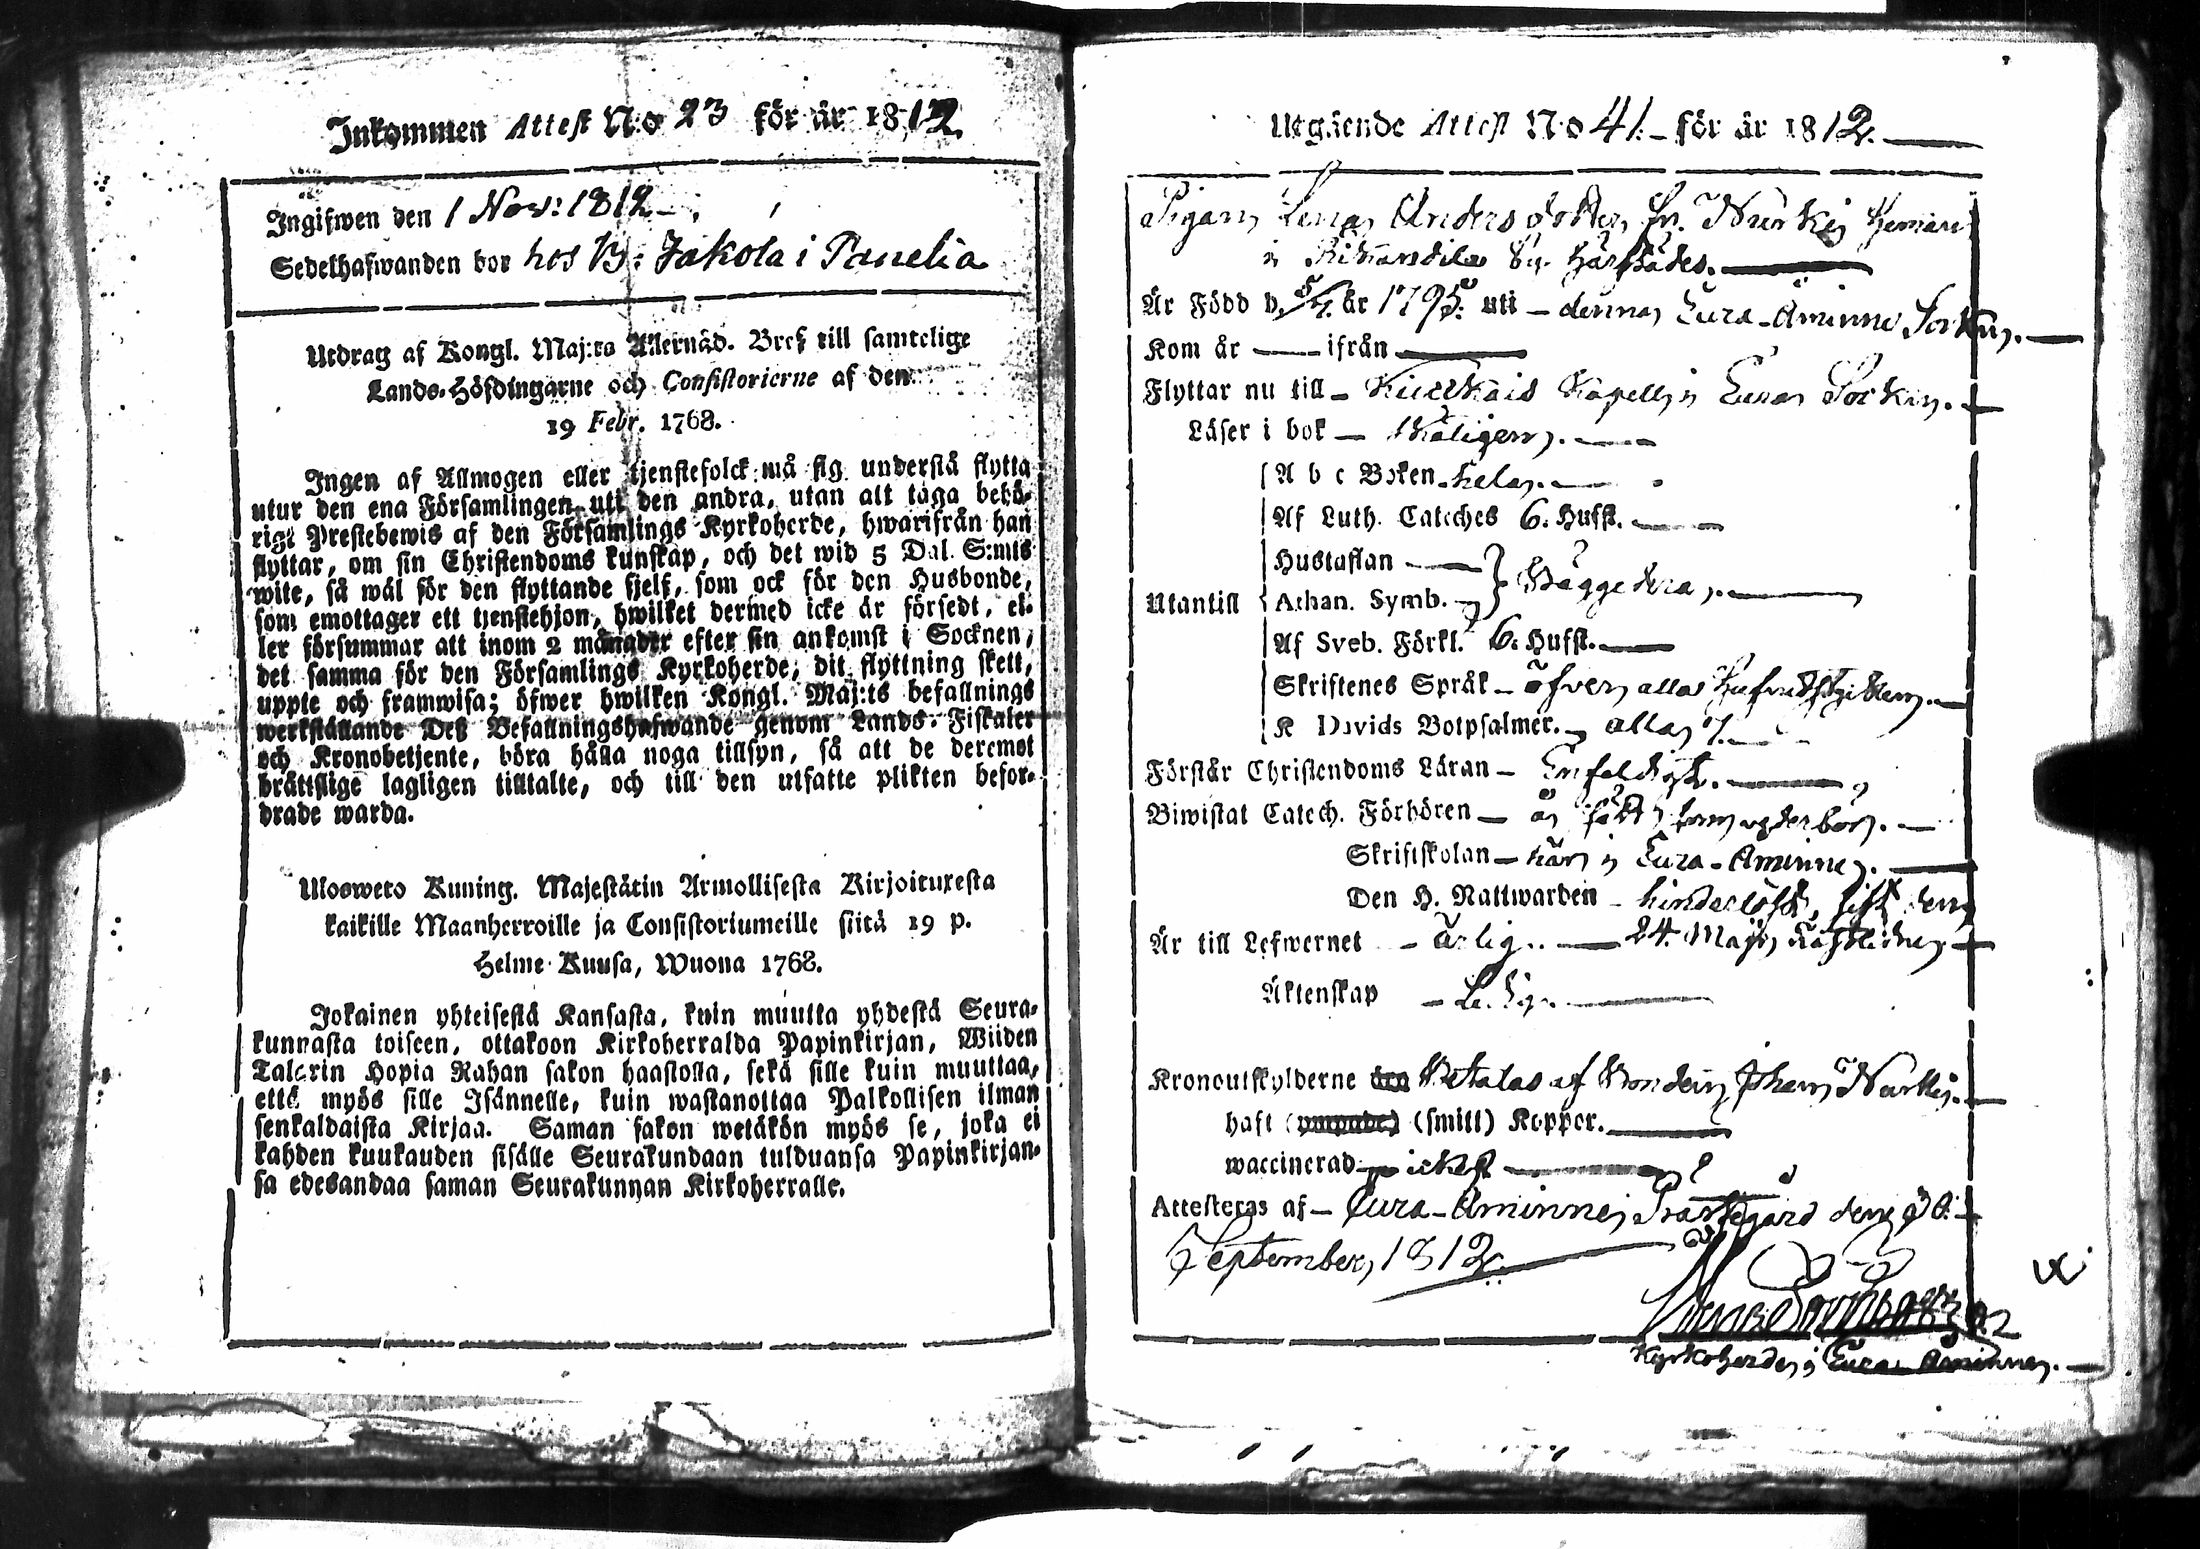 Inkommen Attest N:o 23 för år 1812
Ingifwen den 1 Nov: 1812
Sedelhafwanden bor hos B: Jakola i Panelia
Utdrag af Kongl. Maj:ts Allernåd. Bref till samtelige
Lands-Höfdingarne och Consistorierne af den
19 Febr. 1768.
Ingen af Allmogen eller tjenstefolck må sig understå flytta
utur den ena Församlingen uti den andra, utan att taga behö-
rigt Prestebewis af den Församlings Kyrkoherde, hwarifrån han
flyttar, om sin Christendoms kunskap, och det wid 5 Dal. S:mts
wite, så wäl för den flyttande sjelf, som ock för den Husbonde,
som emottager ett tjenstehjon, hwilket dermed icke är försedt, el-
ler försummar att inom 2 månader efter sin ankomst i Socknen,
det samma för den Församlings Kyrkoherde, dit flyttning skett,
uppte och framwisa; öfwer hwilken Kongl. Maj:ts befallnings
werkställande Deß Befallningshafwande genom Lands-Fiskaler
och Kronobetjente, böra hålla noga tillsyn, så att de deremot
brättslige lagligen tilltalte, och till den utsatte plikten befor-
drade warda.
Ulosweto Kuning. Majestätin Armollisesta Kirjoituxesta
kaikille Maanherroille ja Consistoriumeille siitä 19 p.
Helme Kuusa, Wuona 1768.
Jokainen yhteisestä Kansasta, kuin muutta yhdestä Seura-
kunnasta toiseen, ottakoon Kirkoherralda Papinkirjan, Wiiden
Talarin Hopia Rahan sakon haastolla, sekä sille kuin muuttaa,
että myös sille Isännelle, kuin wastanottaa Palkollisen ilman
senkaldaista Kirjaa. Saman sakon wetäkön myös se, joka ei
kahden kuukauden sisälle Seurakundaan tulduansa Papinkirjan-
sa edesandaa saman Seurakunnan Kirkoherralle.
Utgående Attest N:o 41. för år 1812.
Pigan Lena Anders dotter fr. Nurki Heman
i By härstädes.
Är Född d. 5/4. år 1795. uti denna Eura-Åminne Sockn.
Kom år ifrån
Flyttar nu till Kiukais Kapell i Eura Sockn.
Läser i bok
A b c Boken hela.
Af Luth. Cateches 6. Hufst.
Hustaflan
Utantill Athan. Symb. Bägge dera.
Af Sveb. Förkl. 6. Hufst.
Skriftenes Språk öfver alla
K Davids Botpsalmer. alla 7.
Förstår Christendoms Läran Enfeldigt.
Biwistat Catech. Förhören
Skriftskolan här i Eura-Åminne.
Den H. Nattwarden sist den
Är till Lefwernet ärlig. 24. Maji
Äktenskap Ledig.
Kronoutskylderne den Betalas af Bonden Johan Nurki.
haft (ympade) (smitt) Koppor.
waccinerad icke
Attesteras af Eura-Åminne Prästegård den
September 1812.
Kyrkoherde i Eura Åminne.